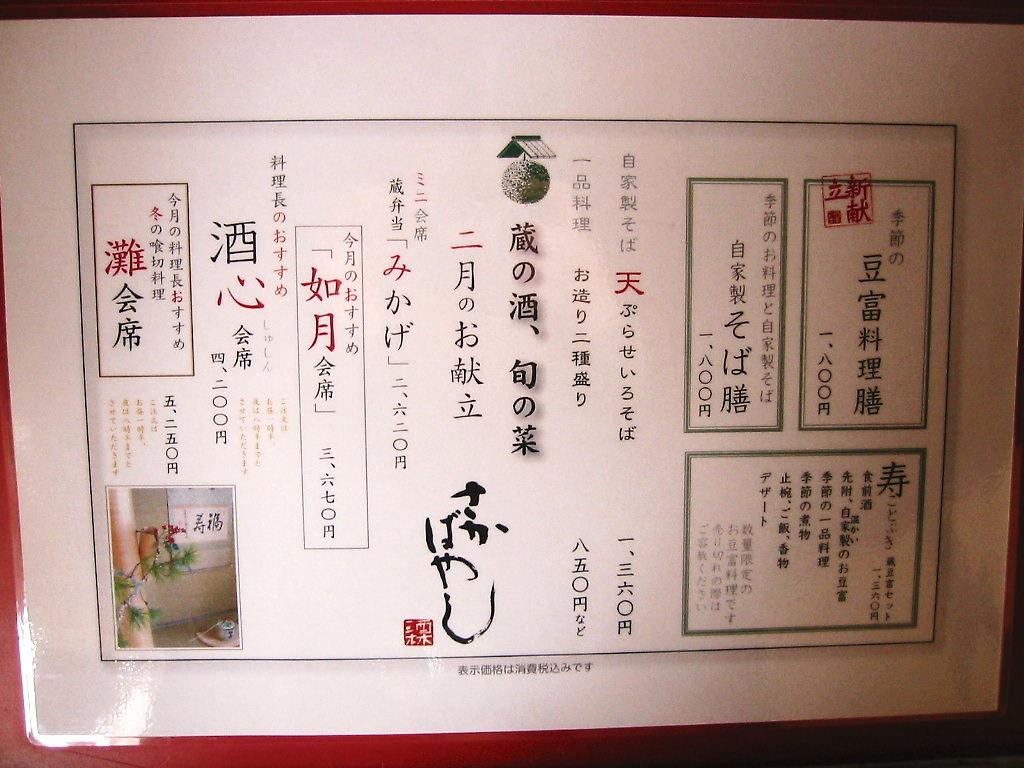 新献立
季節の
豆富料理膳
一、八〇〇円
季節のお料理と自家製そば
自家製そば膳
一、八〇〇円
寿 ことぶき 蔵豆富セット
一、三六〇円
食前酒
先附、自家製の温かいお豆富
季節の一品料理
季節の煮物
止椀、ご飯、香物
デザート
数量限定の
お豆富料理です
売り切れの際は
ご容赦ください
自家製そば 天ぷらせいろそば 一、三六〇円
一品料理 お造り二種盛り 八五〇円など
蔵の酒、旬の菜
二月のお献立
さかばやし
ミニ会席
蔵弁当「みかげ」二、六二〇円
今月のおすすめ
「如月会席」 三、六七〇円
料理長のおすすめ
酒心会席 四、二〇〇円
しゅしん
ご注文は
お昼一時半、
夜は八時半までと
させていただきます
今月の料理長おすすめ
冬の喰切料理
灘会席
五、二五〇円
ご注文は
お昼一時半、
夜は八時半までと
させていただきます
福寿
表示価格は消費税込みです